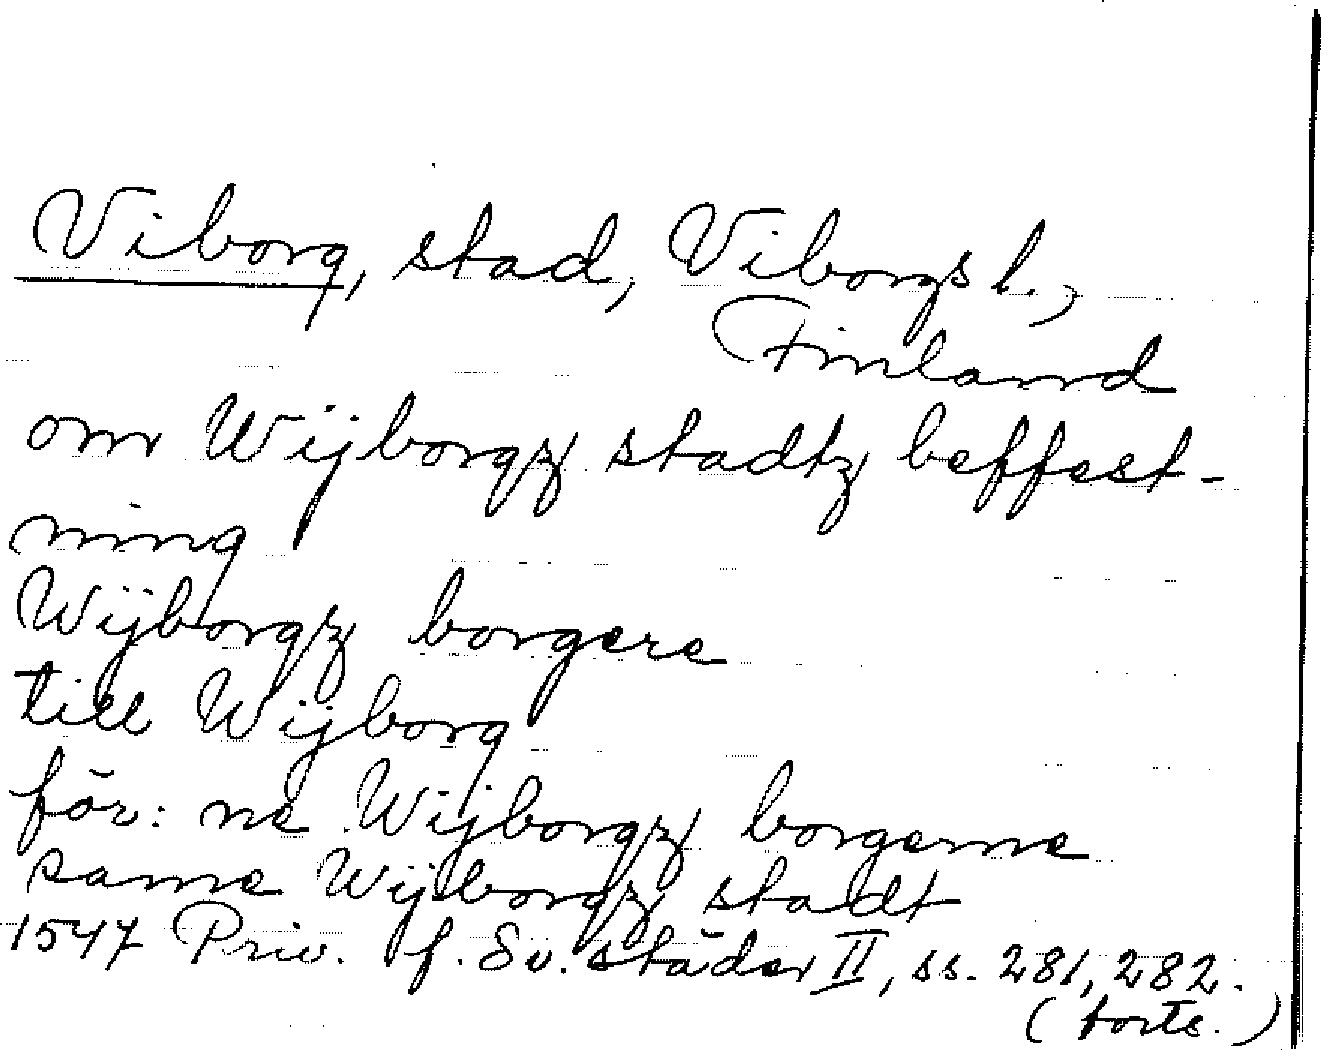 Viborg, stad, Viborgs l.,
Finland
om Wijborgz stadtz beffest-
ning
Wijborgz borgere
till Wijborg
för: ne Wijborgz borgerne
same Wijborgz stadt
1547 Priv. f. Sv. städer II, ss. 281, 282.
(forts.)